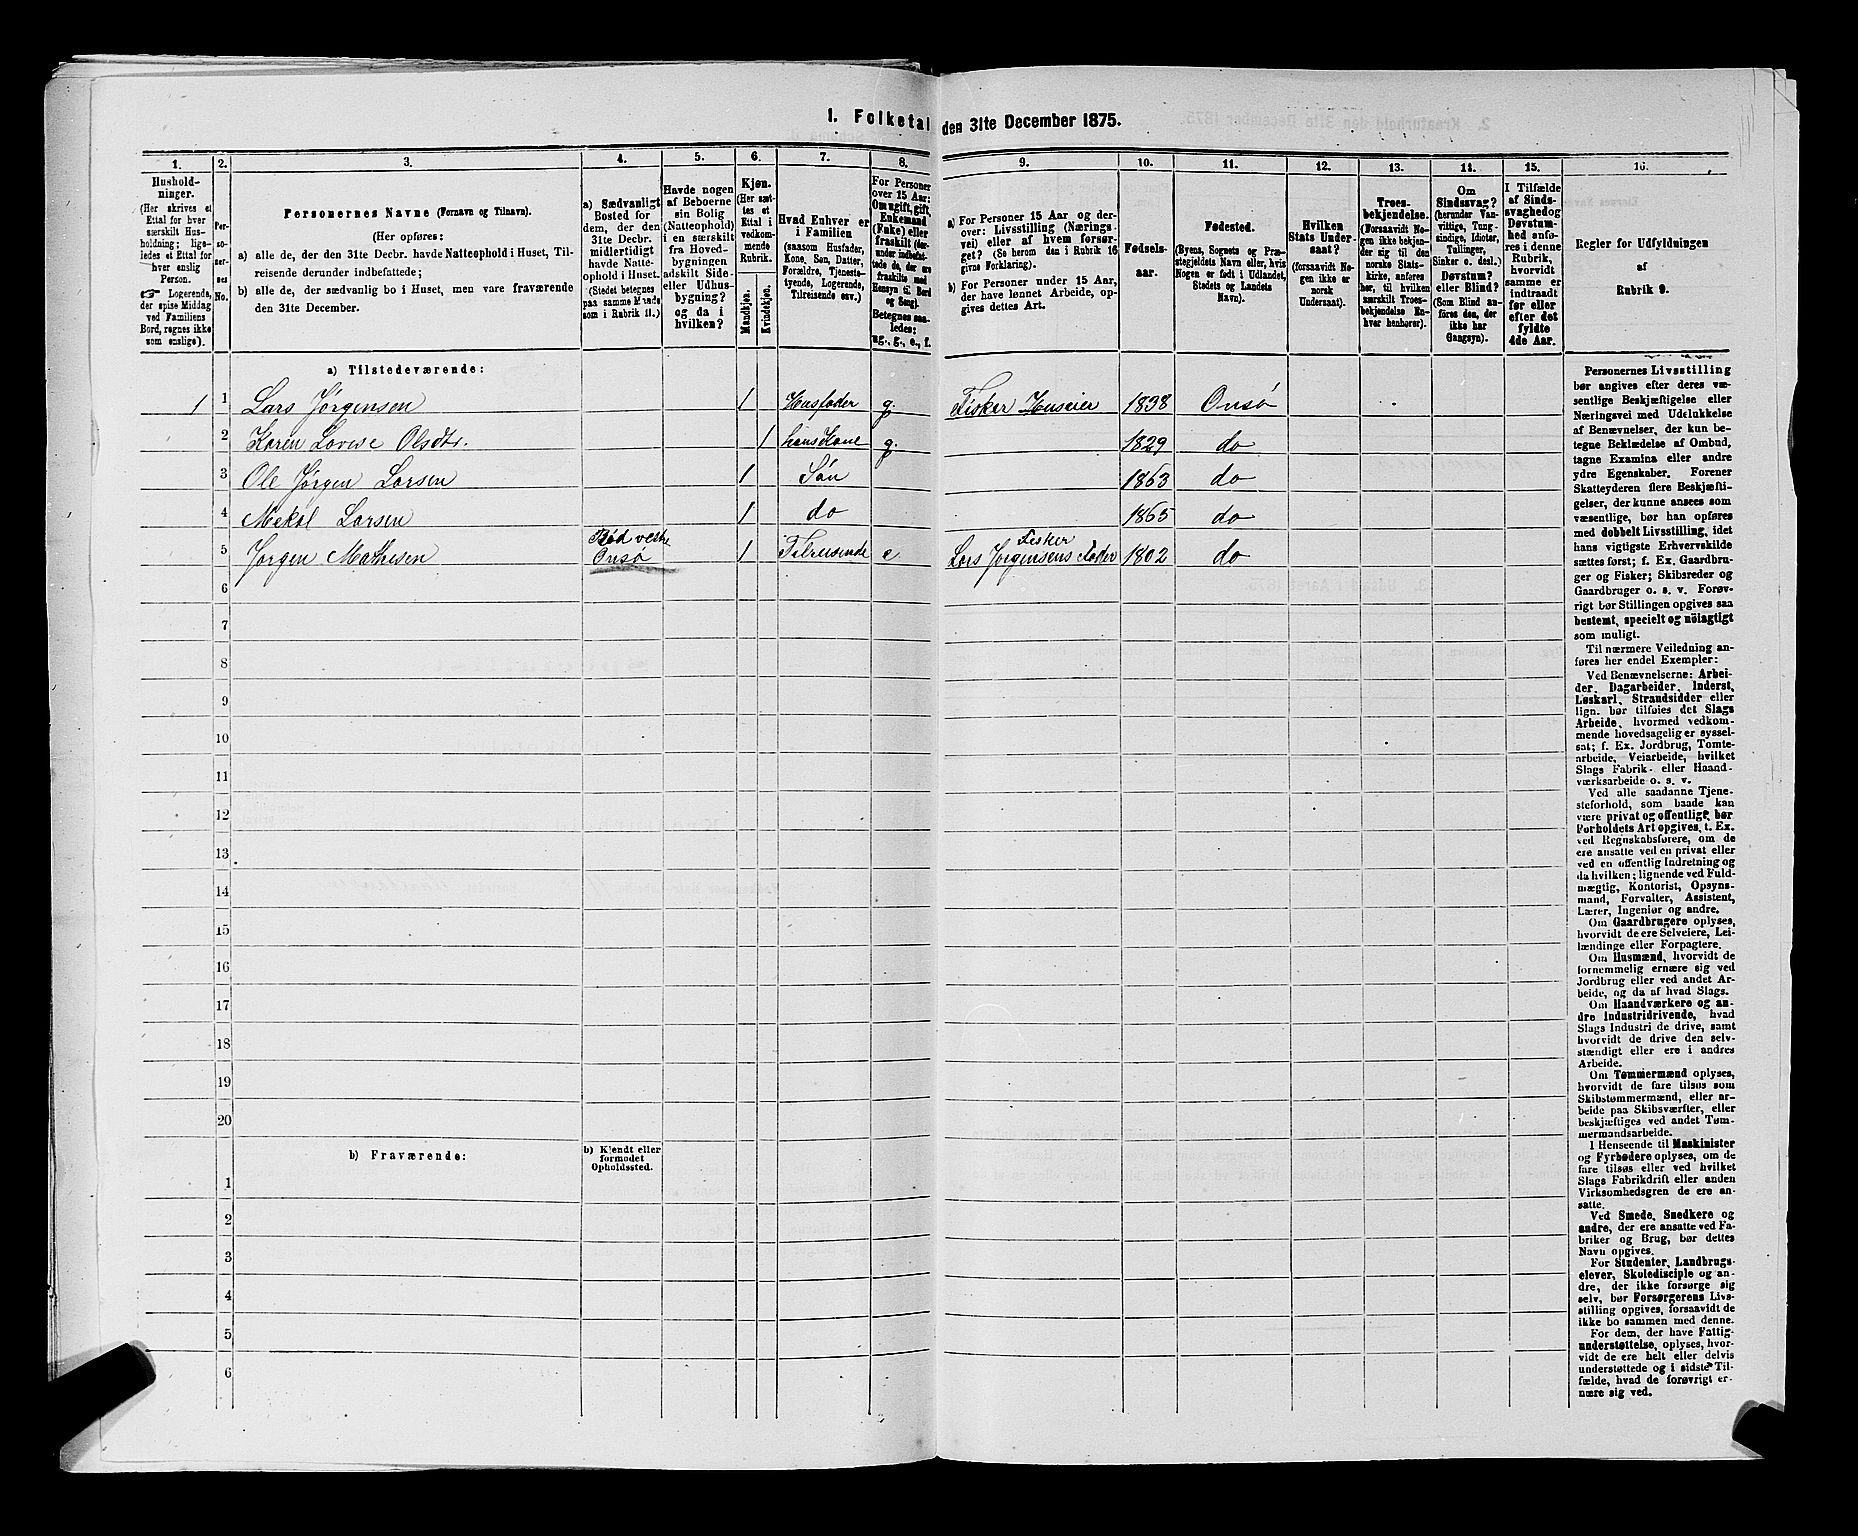 1. Folketal den 31te December 1875.
1. 2. 3. 4. 5. 6. 7. 8. 9. 10. 11. 12. 13. 14. 15. 16.
Hushold-
ninger.
(Her skrives et
Ettal for hver
særskilt Hus-
holdning; lige-
ledes et Ettal for
hver enslig
Person.
☞ Logerende,
der spise Middag
ved Familiens
Bord, regnes ikke
som enslige).
Per-
so-
ner-
nes
No.
Personernes Navne (Fornavn og Tilnavn).
(Her opføres:
a) alle de, der den 31te Decbr. havde Natteophold i Huset, Til-
reisende derunder indbefattede;
b) alle de, der sædvanlig bo i Huset, men vare fraværende
den 31te December.
a) Sædvanligt
Bosted for
dem, der den
31te Decbr.
midlertidigt
havde Natte-
ophold i Huset.
(Stedet betegnes
paa samme Maade
som i Rubrik 11.)
Havde nogen
af Beboerne
sin Bolig
(Natteophold)
i en særskilt
fra Hoved-
bygningen
adskilt Side-
eller Udhus-
bygning?
og da i
hvilken?
Kjøn.
(Her sæt-
tes et
Ettal i
vedkom-
mende
Rubrik.
Mandkjøn.
Kvindekjøn.
Hvad Enhver er
i Familien
(saasom Husfader,
Kone, Søn, Datter,
Forældre, Tjeneste-
tyende, Logerende,
Tilreisende osv.)
For Personer
over 15 Aar:
Om ugift, gift,
Enkemand
(Enke) eller
fraskilt (der-
under indbefat-
tede de, der ere
fraskilte med
Hensyn til Bord
og Seng).
Betegnes saa-
ledes:
ug., g., e., f.
a) For Personer 15 Aar og der-
over: Livsstilling (Nærings-
vei) eller af hvem forsør-
get? (Se herom den i Rubrik 16
givne Forklaring).
b) For Personer under 15 Aar,
der have lønnet Arbeide, op-
gives dettes Art.
Fødsels-
aar.
Fødested.
(Byens, Sognets og Præ-
stegjeldets Navn eller, hvis
Nogen er født i Udlandet,
Stedets og Landets
Navn).
Hvilken
Stats Under-
saat?
(forsaavidt No-
gen ikke er
norsk
Undersaat).
Troes-
bekjendelse.
(Forsaavidt No-
gen ikke bekjen-
der sig til den
norske Stats-
kirke, anføres
her, til hvilken
særskilt Troes-
bekjendelse En-
hver henhører).
Om
Sindssvag?
(herunder Van-
vittige, Tung-
sindige, Idioter,
Tullinger,
Sinker o. desl.)
Døvstum?
eller Blind?
(Som Blind an-
føres den, der
ikke har
Gangsyn).
I Tilfælde
af Sinds-
svaghed og
Døvstum-
hed anfø-
res i denne
Rubrik,
hvorvidt
samme er
indtraadt
før eller
efter det
fyldte
4de Aar.
Regler for Udfyldningen
af
Rubrik 9.
a) Tilstedeværende:
1 1 Lars Jørgensen 1 Husfader g. Fisker Huseier 1838 Onsø
2 Karen Lovise Olsdtr. 1 hans Kone g. 1829 do
3 Ole Jørgen Larsen 1 Søn 1863 do
4 Mekal Larsen 1 do 1865 do
5 Jørgen Mathesen Onsø 1 Tilreisende e Fisker Lars Jørgensens Fader 1802 do
6
7
8
9
10
11
12
13
14
15
16
17
18
19
20
b) Fraværende:
b) Kjendt eller
formodet
Opholdssted.
1
2
3
4
5
6
Personernes Livsstilling
bør angives efter deres væ-
sentlige Beskjæftigelse eller
Næringsvei med Udelukkelse
af Benævnelser, der kun be-
tegne Beklædelse af Ombud,
tagne Examina eller andre
ydre Egenskaber. Forener
Skatteyderen flere Beskjæfti-
gelser, der kunne ansees som
væsentlige, bør han opføres
med dobbelt Livsstilling, idet
hans vigtigste Erhvervskilde
sættes først; f. Ex. Gaardbru-
ger og Fisker; Skibsreder og
Gaardbruger o. s. v. Forøv-
rigt bør Stillingen opgives saa
bestemt, specielt og nöiagtigt
som muligt.
Til nærmere Veiledning an-
føres her endel Exempler:
Ved Benævnelserne: Arbei-
der, Dagarbeider, Inderst,
Løskarl, Strandsidder eller
lign. bør tilføies det Slags
Arbeide, hvormed vedkom-
mende hovedsagelig er syssel-
sat; f. Ex. Jordbrug, Tomte-
arbeide, Veiarbeide, hvilket
Slags Fabrik- eller Haand-
værksarbeide o. s. v.
Ved alle saadanne Tjene-
steforhold, som baade kan
være privat og offentligt, bør
Forholdets Art opgives, t. Ex.
ved Regnskabsførere, om de
ere ansatte ved en privat eller
ved en offentlig Indretning og
da hvilken; lignende ved Fuld-
mægtig, Kontorist, Opsyns-
mand, Forvalter, Assistent,
Lærer, Ingeniør og andre.
Om Gaardbrugere oplyses,
hvorvidt de ere Selveiere, Lei-
lændinge eller Forpagtere.
Om Husmænd, hvorvidt de
fornemmelig ernære sig ved
Jordbrug eller ved andet Ar-
beide, og da af hvad Slags.
Om Haandværkere og an-
dre Industridrivende, hvad
Slags Industri de drive, samt
hvorvidt de drive den selv-
stændigt eller ere i andres
Arbeide.
Om Tømmermænd oplyses,
hvorvidt de fare tilsøs som
Skibstømmermænd, eller ar-
beide paa Skibsværfter, eller
beskjæftiges ved andet Tøm-
mermandsarbeide.
I Henseende til Maskinister
og Fyrbødere oplyses, om de
fare tilsøs eller ved hvilket
Slags Fabrikdrift eller anden
Virksomhedsgren de ere an-
satte.
Ved Smede, Snedkere og
andre, der ere ansatte ved Fa-
briker og Brug, bør dettes
Navn opgives.
For Studenter, Landbrugs-
elever, Skoledisciple og an-
dre, der ikke forsørge sig
selv, bør Forsørgerens Livs-
stilling opgives, forsaavidt de
ikke bo sammen med denne.
For dem, der have Fattig-
understøttelse, oplyses, hvor-
vidt de ere helt eller delvis
understøttede og i sidste Til-
fælde, hvad de forøvrigt er-
nære sig ved.